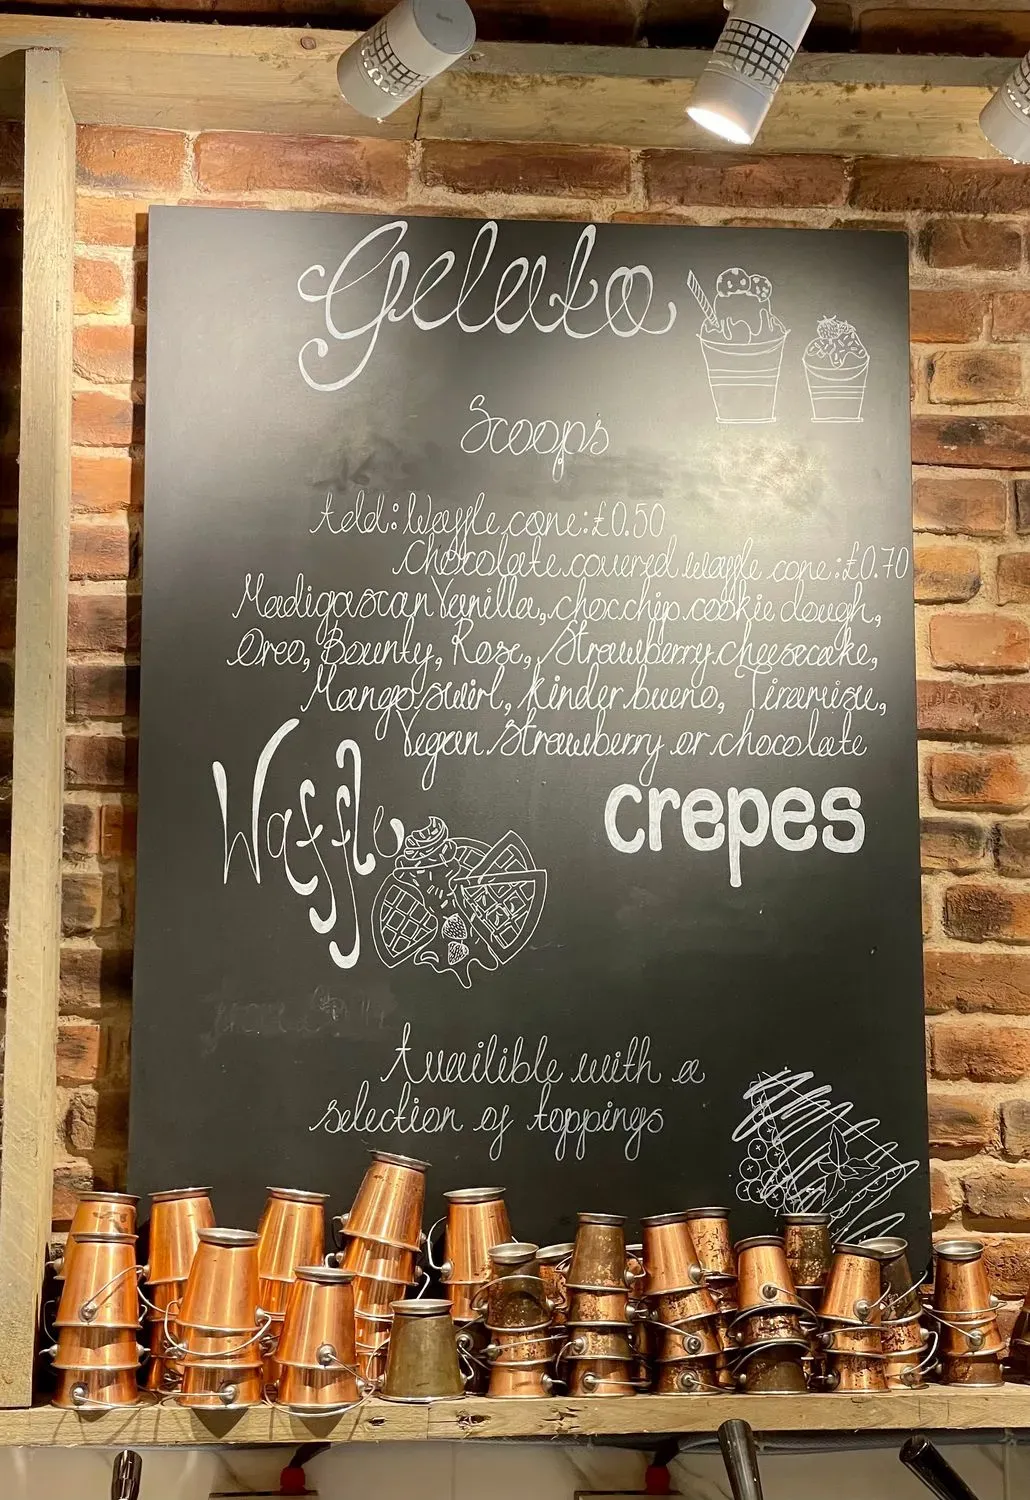 Gelato
Scoops
Add: Waffle cone: £0.50
Chocolate covered waffle cone: £0.70
Madigascan Vanilla, choc chip cookie dough,
Oreo, Bounty, Rose, Strawberry cheesecake,
Mango swirl, Kinder bueno, Tiramisu,
Vegan Strawberry or chocolate
Waffle
crepes
Availible with a
selection of toppings